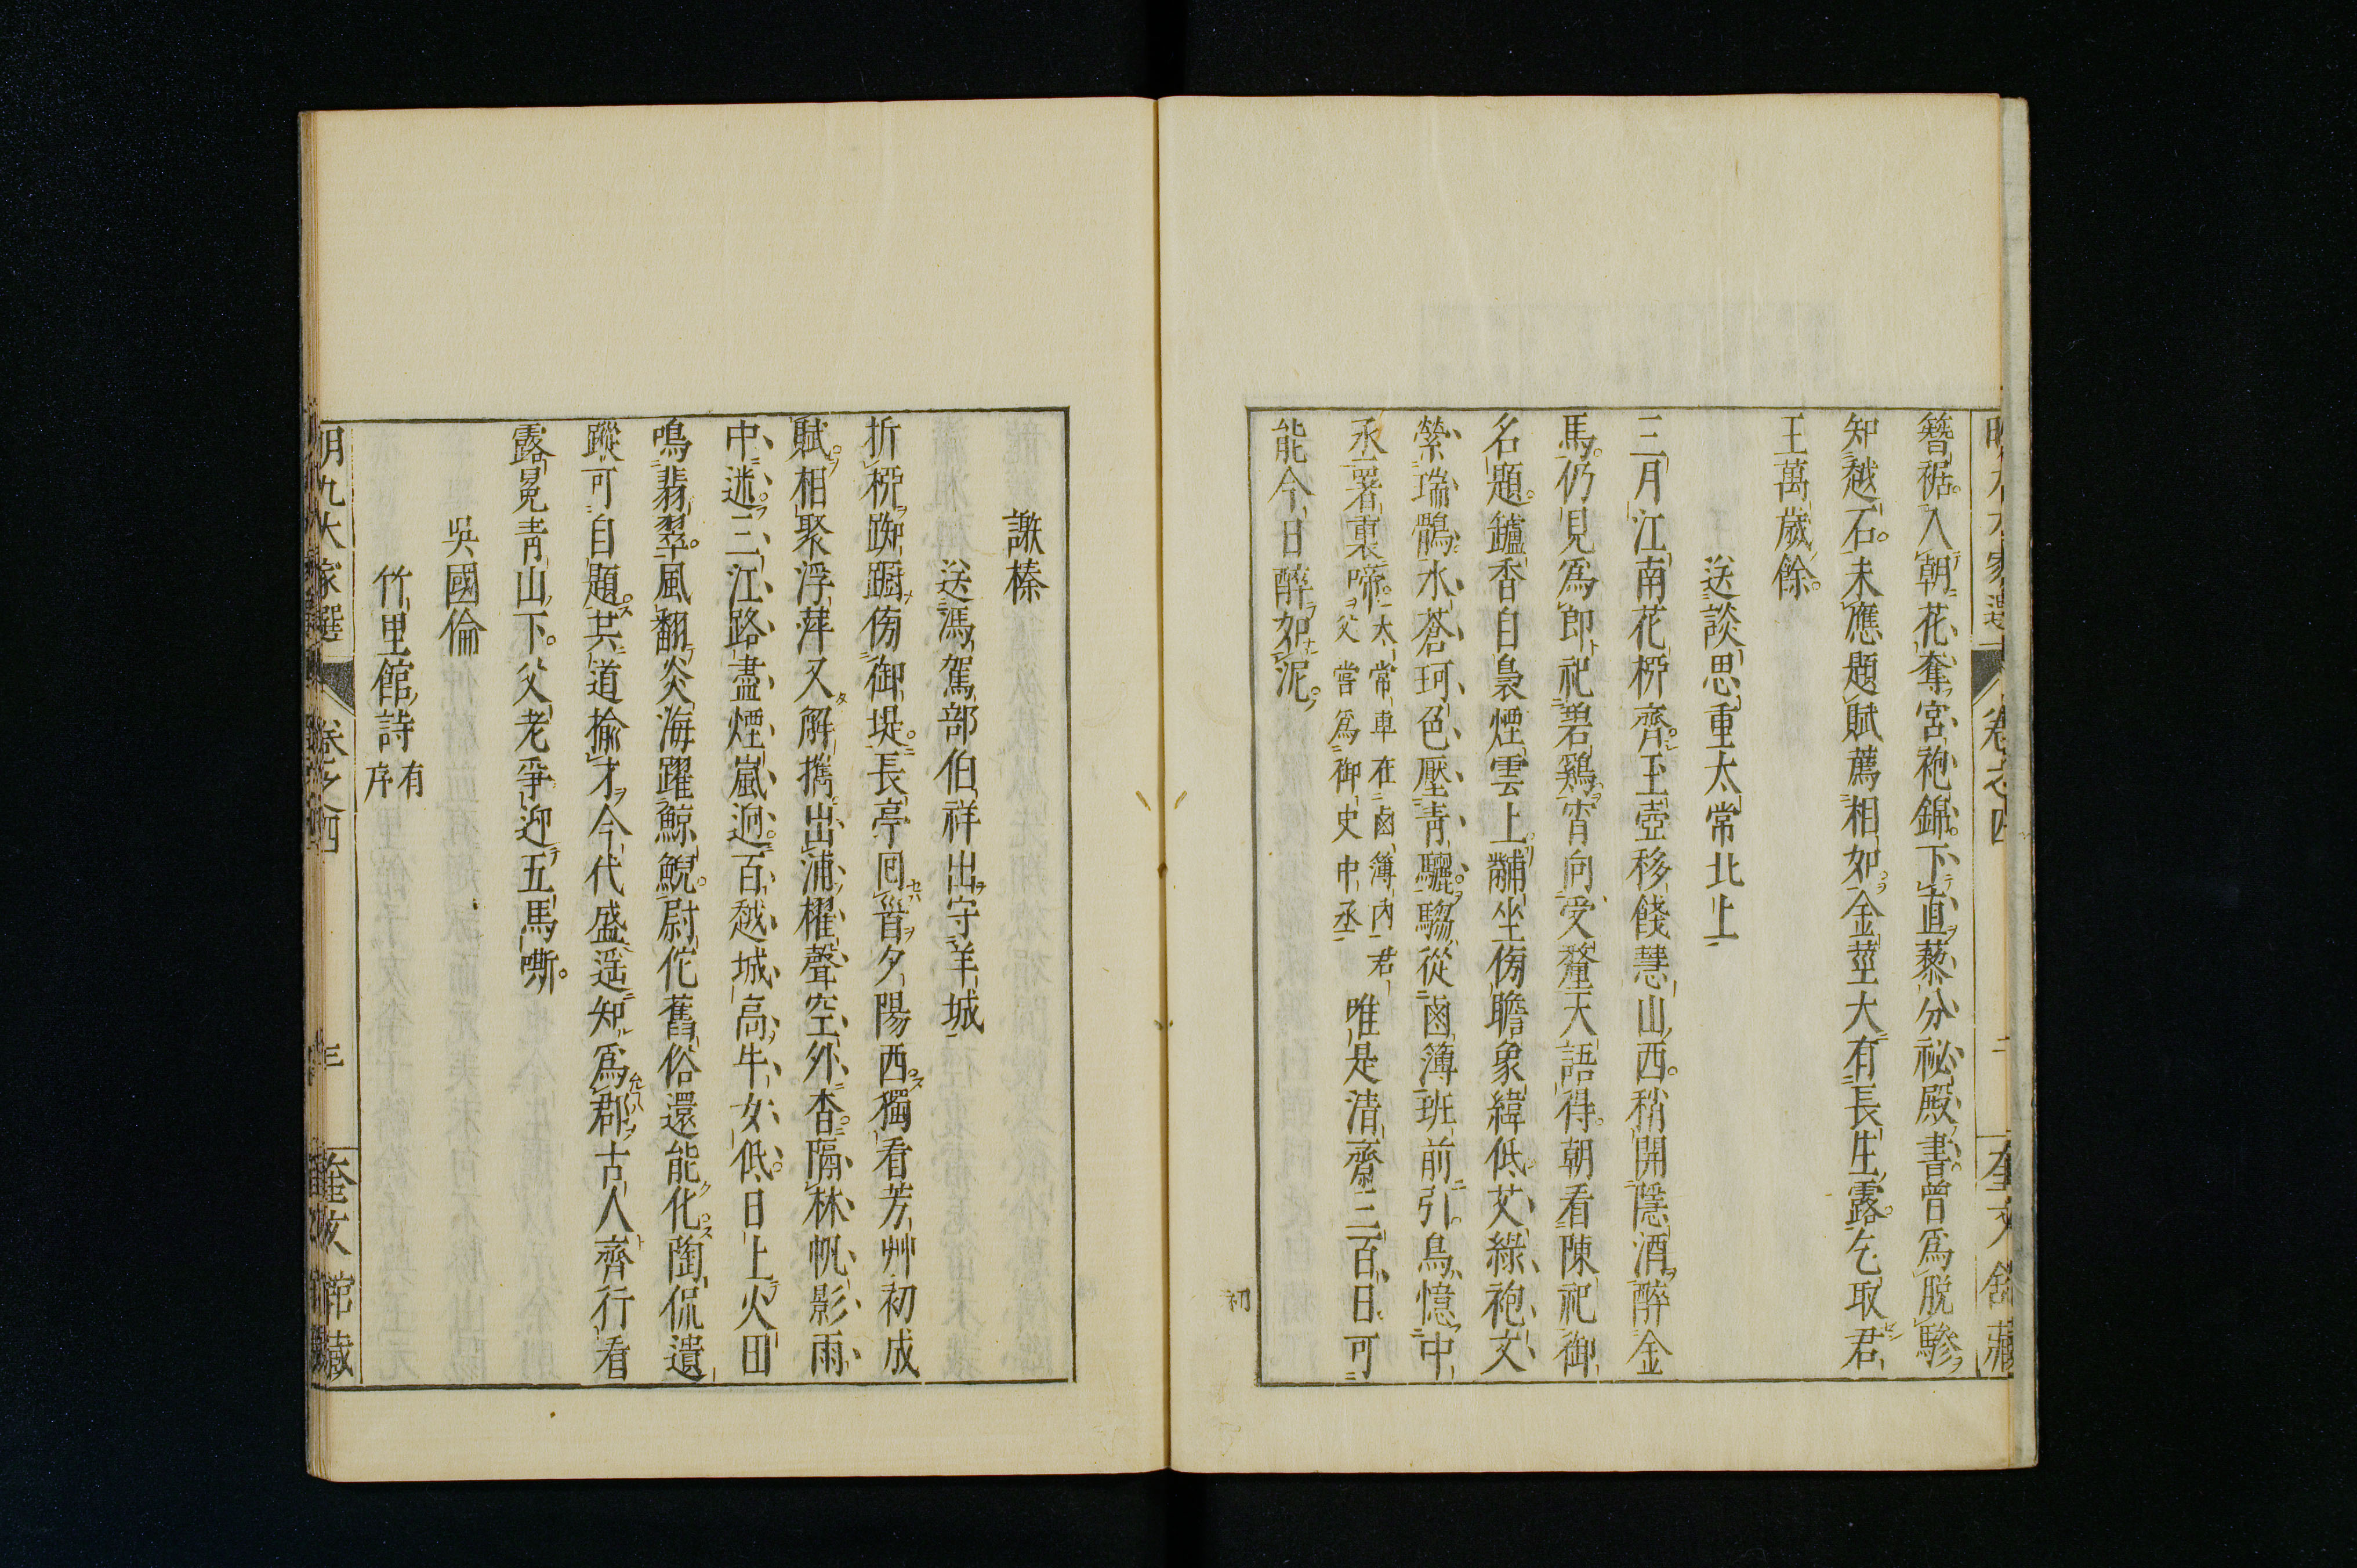 簪裾入朝花奪宮袍錦下直藜分祕殿書曾爲脫驂
知越石未應題賦薦相如金莖大有長生露乞取君
王萬歲餘
送談思重太常北上
三月江南花柳齊玉壺移餞慧山西稍開隱酒醉金
馬仍見爲郎祀碧鷄宵向受釐天語得朝看陳祀御
名題鑪香自裊煙雲上黼坐傍瞻象緯低艾綠袍文
縈瑞鶻水蒼珂色壓青驪騶從鹵簿班前引烏憶中
丞署裏啼
太常車在鹵簿內君
父嘗爲御史中丞
唯是清齋三百日可
能今日醉如泥
初
謝榛
送馮駕部伯祥出守羊城
折柳踟躕傍御堤長亭回首夕陽西獨看芳艸初成
賦相聚浮萍又解攜出浦櫂聲空外杳隔林帆影雨
中迷三江路盡煙嵐迥百越城高牛女低日上火田
鳴翡翠風翻炎海躍鯨鯢尉佗舊俗還能化陶侃遺
蹤可自題共道掄才今代盛遥知爲郡古人齊行看
露冕青山下父老爭迎五馬嘶
吳國倫
竹里館詩
有
序
明九大家選
卷之四
奎文館藏